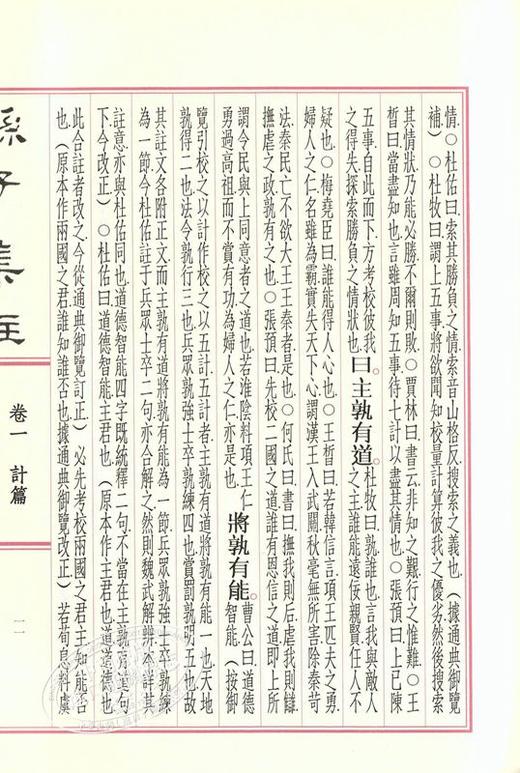 情。○杜佑曰索其勝負之情索音山格反搜索之義也(據通典御覽
補)○杜牧曰謂上五事將欲聞知校量計算彼我之優劣然後搜索
其情狀乃能必勝不爾則敗○賈林曰書云非知之艱行之惟難○王
晳曰當盡知也言雖周知五事待七計以盡其情也○張預曰上已陳
五事自此而下方考校彼我
之得失探索勝負之情狀也
曰主孰有道。
杜牧曰孰誰也言我與敵人
之主誰能遠佞親賢任人不
疑也○梅堯臣曰誰能得人心也○王晳曰若韓信言項王匹夫之勇
婦人之仁名雖為霸實失天下心謂漢王入武關秋毫無所害除秦苛
法秦民亡不欲大王王秦者是也○何氏曰書曰撫我則后虐我則讎
撫虐之政孰有之也○張預曰先校二國之道誰有恩信之道即上所
謂令民與上同意者之道也若淮陰料項王仁
勇過高祖而不賞有功為婦人之仁亦是也
將孰有能。
曹公曰道德
智能(按御
覽引校之以計作校之以五計五計者主孰有道將孰有能一也天地
孰得二也法令孰行三也兵眾孰強士卒孰練四也賞罰孰明五也故
其註文各附正文而主孰有道將孰有能為一節兵眾孰強士卒孰練
為一節今杜佑註于兵眾士卒二句亦合解之然則魏武解辨本詳其
註意亦與杜佑同也道德智能四字既統釋二句不當在主孰有道句之
下今改正)○杜佑曰道德智能主君也(原本作主君也道道德也
此合註者改之今從通典御覽訂正)必先考校兩國之君主知能否
也(原本作兩國之君誰知誰否也據通典御覽改正)若荀息料虞
孫子集註
卷一 計篇
一一